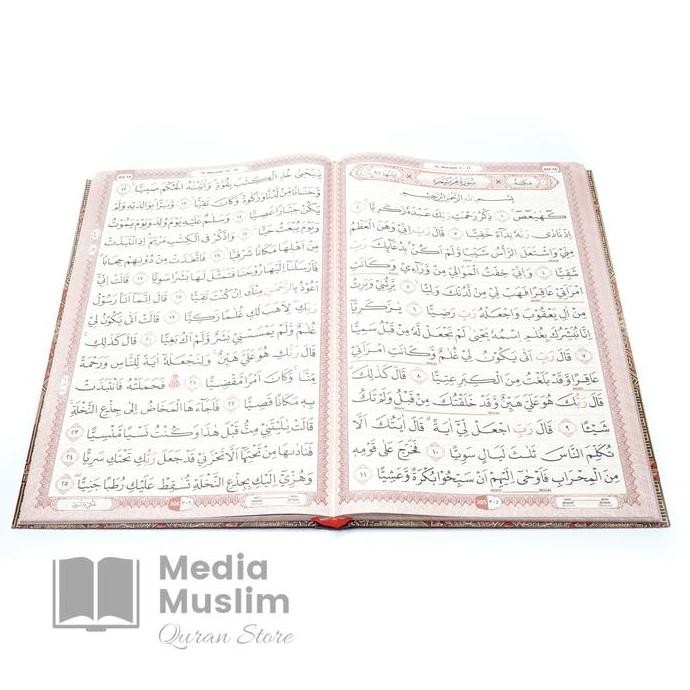 19. Maryam: 1 - 11
JUZ 16
مكية سورة مريم
بِسْمِ اللّٰهِ الرَّحْمٰنِ الرَّحِيْمِ
كۤهٰيٰعۤصۤ ۝١ ذِكْرُ رَحْمَتِ رَبِّكَ عَبْدَهٗ زَكَرِيَّا ۝٢
اِذْ نَادٰى رَبَّهٗ نِدَاۤءً خَفِيًّا ۝٣ قَالَ رَبِّ اِنِّيْ وَهَنَ الْعَظْمُ
مِنِّيْ وَاشْتَعَلَ الرَّأْسُ شَيْبًا وَّلَمْ اَكُنْۢ بِدُعَاۤىِٕكَ رَبِّ
شَقِيًّا ۝٤ وَاِنِّيْ خِفْتُ الْمَوَالِيَ مِنْ وَّرَاۤءِيْ وَكَانَتِ
امْرَاَتِيْ عَاقِرًا فَهَبْ لِيْ مِنْ لَّدُنْكَ وَلِيًّا ۝٥ يَّرِثُنِيْ وَيَرِثُ
مِنْ اٰلِ يَعْقُوْبَ وَاجْعَلْهُ رَبِّ رَضِيًّا ۝٦ يٰزَكَرِيَّآ
اِنَّا نُبَشِّرُكَ بِغُلٰمِ ِۨاسْمُهٗ يَحْيٰىۙ لَمْ نَجْعَلْ لَّهٗ مِنْ قَبْلُ سَمِيًّا
۝٧ قَالَ رَبِّ اَنّٰى يَكُوْنُ لِيْ غُلٰمٌ وَّكَانَتِ امْرَاَتِيْ
عَاقِرًا وَّقَدْ بَلَغْتُ مِنَ الْكِبَرِ عِتِيًّا ۝٨ قَالَ كَذٰلِكَ
قَالَ رَبُّكَ هُوَ عَلَيَّ هَيِّنٌ وَّقَدْ خَلَقْتُكَ مِنْ قَبْلُ وَلَمْ تَكُ
شَيْـًٔا ۝٩ قَالَ رَبِّ اجْعَلْ لِّيْٓ اٰيَةً ۗقَالَ اٰيَتُكَ اَلَّا
تُكَلِّمَ النَّاسَ ثَلٰثَ لَيَالٍ سَوِيًّا ۝١٠ فَخَرَجَ عَلٰى قَوْمِهٖ
مِنَ الْمِحْرَابِ فَاَوْحٰىٓ اِلَيْهِمْ اَنْ سَبِّحُوْا بُكْرَةً وَّعَشِيًّا ۝١١
305 ٣٠٥
19. Maryam
JUZ 16
يٰيَحْيٰى خُذِ الْكِتٰبَ بِقُوَّةٍ ۗوَاٰتَيْنٰهُ الْحُكْمَ صَبِيًّا ۝١٢
وَحَنَانًا مِّنْ لَّدُنَّا وَزَكٰوةً ۗوَكَانَ تَقِيًّا ۝١٣ وَبَرًّاۢ بِوَالِدَيْهِ وَلَمْ
يَكُنْ جَبَّارًا عَصِيًّا ۝١٤ وَسَلٰمٌ عَلَيْهِ يَوْمَ وُلِدَ وَيَوْمَ يَمُوْتُ
وَيَوْمَ يُبْعَثُ حَيًّا ۝١٥ وَاذْكُرْ فِى الْكِتٰبِ مَرْيَمَ اِذِ انْتَبَذَتْ
مِنْ اَهْلِهَا مَكَانًا شَرْقِيًّا ۝١٦ فَاتَّخَذَتْ مِنْ دُوْنِهِمْ حِجَابًا
فَاَرْسَلْنَآ اِلَيْهَا رُوْحَنَا فَتَمَثَّلَ لَهَا بَشَرًا سَوِيًّا ۝١٧ قَالَتْ اِنِّيْٓ
اَعُوْذُ بِالرَّحْمٰنِ مِنْكَ اِنْ كُنْتَ تَقِيًّا ۝١٨ قَالَ اِنَّمَآ اَنَا۠ رَسُوْلُ
رَبِّكِۖ لِاَهَبَ لَكِ غُلٰمًا زَكِيًّا ۝١٩ قَالَتْ اَنّٰى يَكُوْنُ لِيْ
غُلٰمٌ وَّلَمْ يَمْسَسْنِيْ بَشَرٌ وَّلَمْ اَكُ بَغِيًّا ۝٢٠ قَالَ كَذٰلِكِۚ
قَالَ رَبُّكِ هُوَ عَلَيَّ هَيِّنٌۚ وَلِنَجْعَلَهٗٓ اٰيَةً لِّلنَّاسِ وَرَحْمَةً
مِّنَّاۚ وَكَانَ اَمْرًا مَّقْضِيًّا ۝٢١ فَحَمَلَتْهُ فَانْتَبَذَتْ
بِهٖ مَكَانًا قَصِيًّا ۝٢٢ فَاَجَاۤءَهَا الْمَخَاضُ اِلٰى جِذْعِ النَّخْلَةِۚ
قَالَتْ يٰلَيْتَنِيْ مِتُّ قَبْلَ هٰذَا وَكُنْتُ نَسْيًا مَّنْسِيًّا ۝٢٣
فَنَادٰىهَا مِنْ تَحْتِهَآ اَلَّا تَحْزَنِيْ قَدْ جَعَلَ رَبُّكِ تَحْتَكِ سَرِيًّا ۝٢٤
وَهُزِّيْٓ اِلَيْكِ بِجِذْعِ النَّخْلَةِ تُسٰقِطْ عَلَيْكِ رُطَبًا جَنِيًّا ۝٢٥
306 ٣٠٦
Media
Muslim
Quran Store